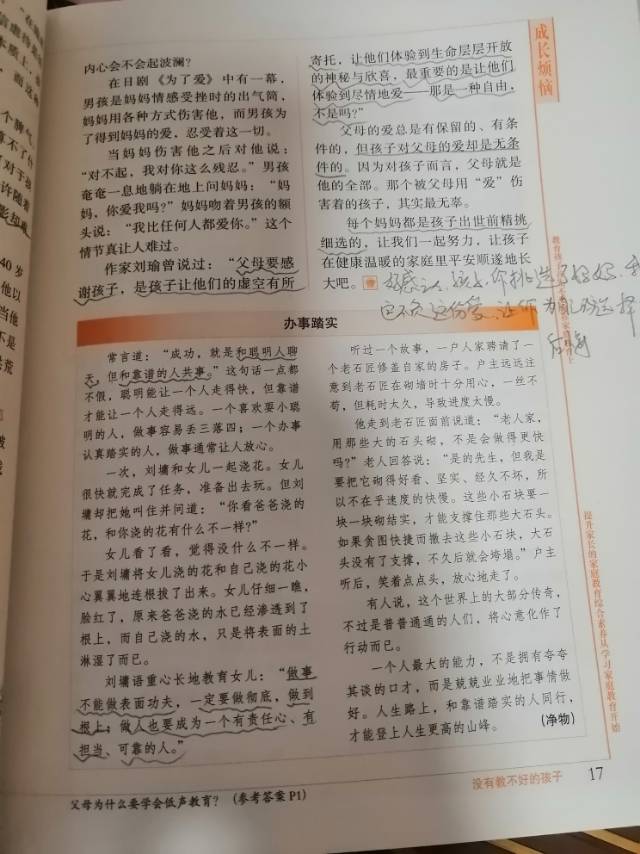 内心会不会起波澜？
在日剧《为了爱》中有一幕，
男孩是妈妈情感受挫时的出气筒，
妈妈用各种方式伤害他，而男孩为
了得到妈妈的爱，忍受着这一切。
当妈妈伤害他之后对他说：
“对不起，我对你这么残忍。”男孩
奄奄一息地躺在地上问妈妈：“妈
妈，你爱我吗？”妈妈吻着男孩的额
头说：“我比任何人都爱你。”这个
情节真让人难过。
作家刘瑜曾说过：“父母要感
谢孩子，是孩子让他们的虚空有所
寄托，让他们体验到生命层层开放
的神秘与欣喜，最重要的是让他们
体验到尽情地爱——那是一种自由，
不是吗？”
父母的爱总是有保留的、有条
件的，但孩子对父母的爱却是无条
件的。因为对孩子而言，父母就是
他的全部。那个被父母用“爱”伤
害着的孩子，其实最无辜。
每个妈妈都是孩子出世前精挑
细选的，让我们一起努力，让孩子
在健康温暖的家庭里平安顺遂地长
大吧。
成长烦恼
办事踏实
常言道：“成功，就是和聪明人聊
天，但和靠谱的人共事。”这句话一点都
不假，聪明能让一个人走得快，但靠谱
才能让一个人走得远。一个喜欢耍小聪
明的人，做事容易丢三落四；一个办事
认真踏实的人，做事通常让人放心。
一次，刘墉和女儿一起浇花。女儿
很快就完成了任务，准备出去玩。但刘
墉却把她叫住并问道：“你看爸爸浇的
花，和你浇的花有什么不一样？”
女儿看了看，觉得没什么不一样。
于是刘墉将女儿浇的花和自己浇的花小
心翼翼地连根拔了出来。女儿仔细一瞧，
脸红了，原来爸爸浇的水已经渗透到了
根上，而自己浇的水，只是将表面的土
淋湿了而已。
刘墉语重心长地教育女儿：“做事
不能做表面功夫，一定要做彻底，做到
根上；做人也要成为一个有责任心、有
担当、可靠的人。”
听过一个故事，一户人家聘请了一
个老石匠修盖自家的房子。户主远远注
意到老石匠在砌墙时十分用心，一丝不
苟，但耗时太久，导致进度太慢。
他走到老石匠面前说道：“老人家，
用那些大的石头砌，不是会做得更快
吗？”老人回答说：“是的先生，但我是
要把它砌得好看、坚实、经久不坏，所
以不在乎速度的快慢。这些小石块要一
块一块砌结实，才能支撑住那些大石头。
如果贪图快捷而撤去这些小石块，大石
头没有了支撑，不久后就会垮塌。”户主
听后，笑着点点头，放心地走了。
有人说，这个世界上的大部分传奇，
不过是普普通通的人们，将心意化作了
行动而已。
一个人最大的能力，不是拥有夸夸
其谈的口才，而是兢兢业业地把事情做
好。人生路上，和靠谱踏实的人同行，
才能登上人生更高的山峰。
（净物）
提升家长的家庭教育综合素养从学习家庭教育开始
父母为什么要学会低声教育？（参考答案P1）
没有教不好的孩子
17